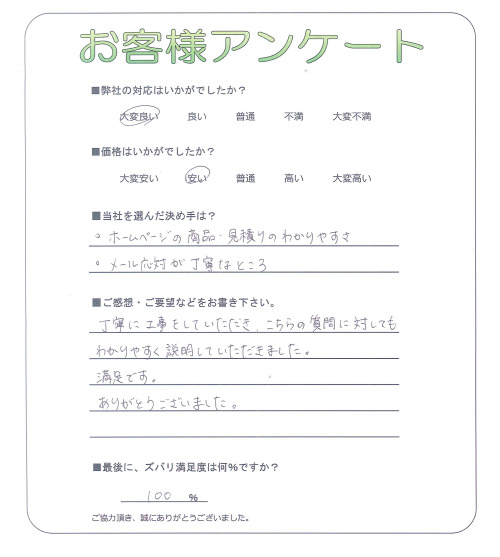 お客様アンケート
■弊社の対応はいかがでしたか？
大変良い 良い 普通 不満 大変不満
■価格はいかがでしたか？
大変安い 安い 普通 高い 大変高い
■当社を選んだ決め手は？
。ホームページの商品・見積りのわかりやすさ
。メール応対が丁寧なところ
■ご感想・ご要望などをお書き下さい。
丁寧に工事をしていただき、こちらの質問に対しても
わかりやすく説明していただきました。
満足です。
ありがとうございました。
■最後に、ズバリ満足度は何%ですか？
100 %
ご協力頂き、誠にありがとうございました。